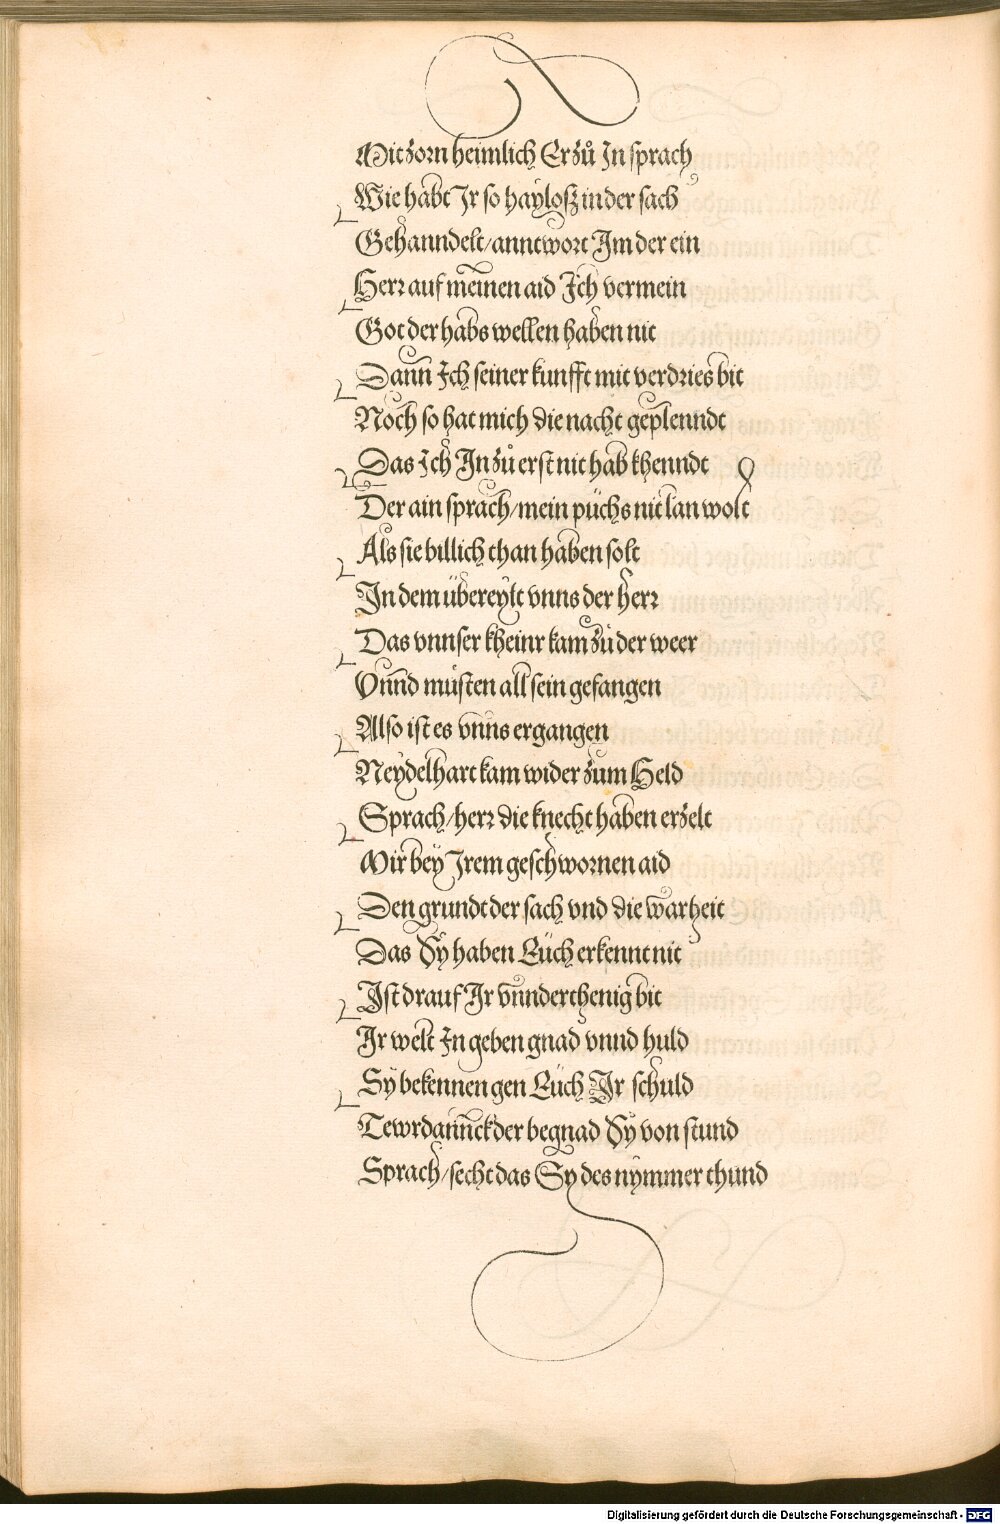 Mit zorn heimlich Er zů Jn sprach
Wie habt Jr so haÿlosz in der sach
Gehanndelt / anntwort Jm der ein
Herr auf meinen aid Jch vermein
Got der habs wellen haben nit
Dann Jch seiner kunfft mit verdries bit
Noch so hat mich die nacht geplenndt
Das Jch Jn zů erst nit hab khenndt
Der ain sprach / mein püchs nit lan wolt
Als sie billich than haben solt
Jn dem übereÿlt vnns der herr
Das vnnser kheinr kam zů der weer
Vnnd müsten all sein gefangen
Also ist es vnns ergangen
Neÿdelhart kam wider zum Held
Sprach / herr die knecht haben erzelt
Mir beÿ Jrem geschwornen aid
Den grundt der sach vnd die warheit
Das Sÿ haben Eüch erkennt nit
Jst drauf Jr vnnderthenig bit
Jr welt Jn geben gnad vnnd huld
Sÿ bekennen gen Eüch Jr schuld
Tewrdannck der begnad Sÿ von stund
Sprach / secht das Sy des nÿmmer thund
Digitalisierung gefördert durch die Deutsche Forschungsgemeinschaft - DFG